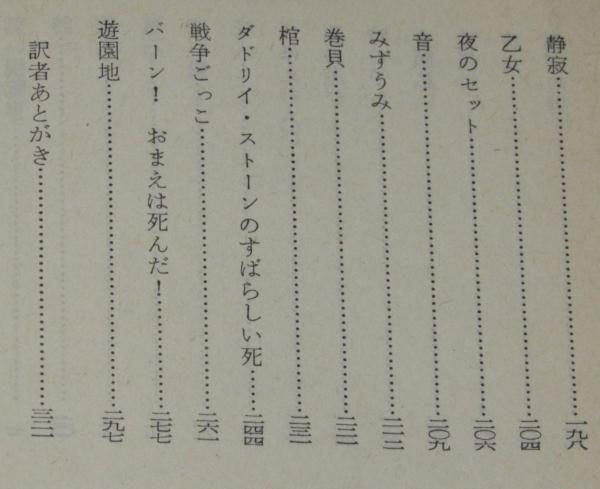 静寂……一九八
乙女……二〇四
夜のセット……二〇六
音……二〇九
みずうみ……二一二
巻貝……二二一
棺……二三一
ダドリイ・ストーンのすばらしい死……二四四
戦争ごっこ……二六一
バーン！　おまえは死んだ！……二七七
遊園地……二九七
訳者あとがき……三二一